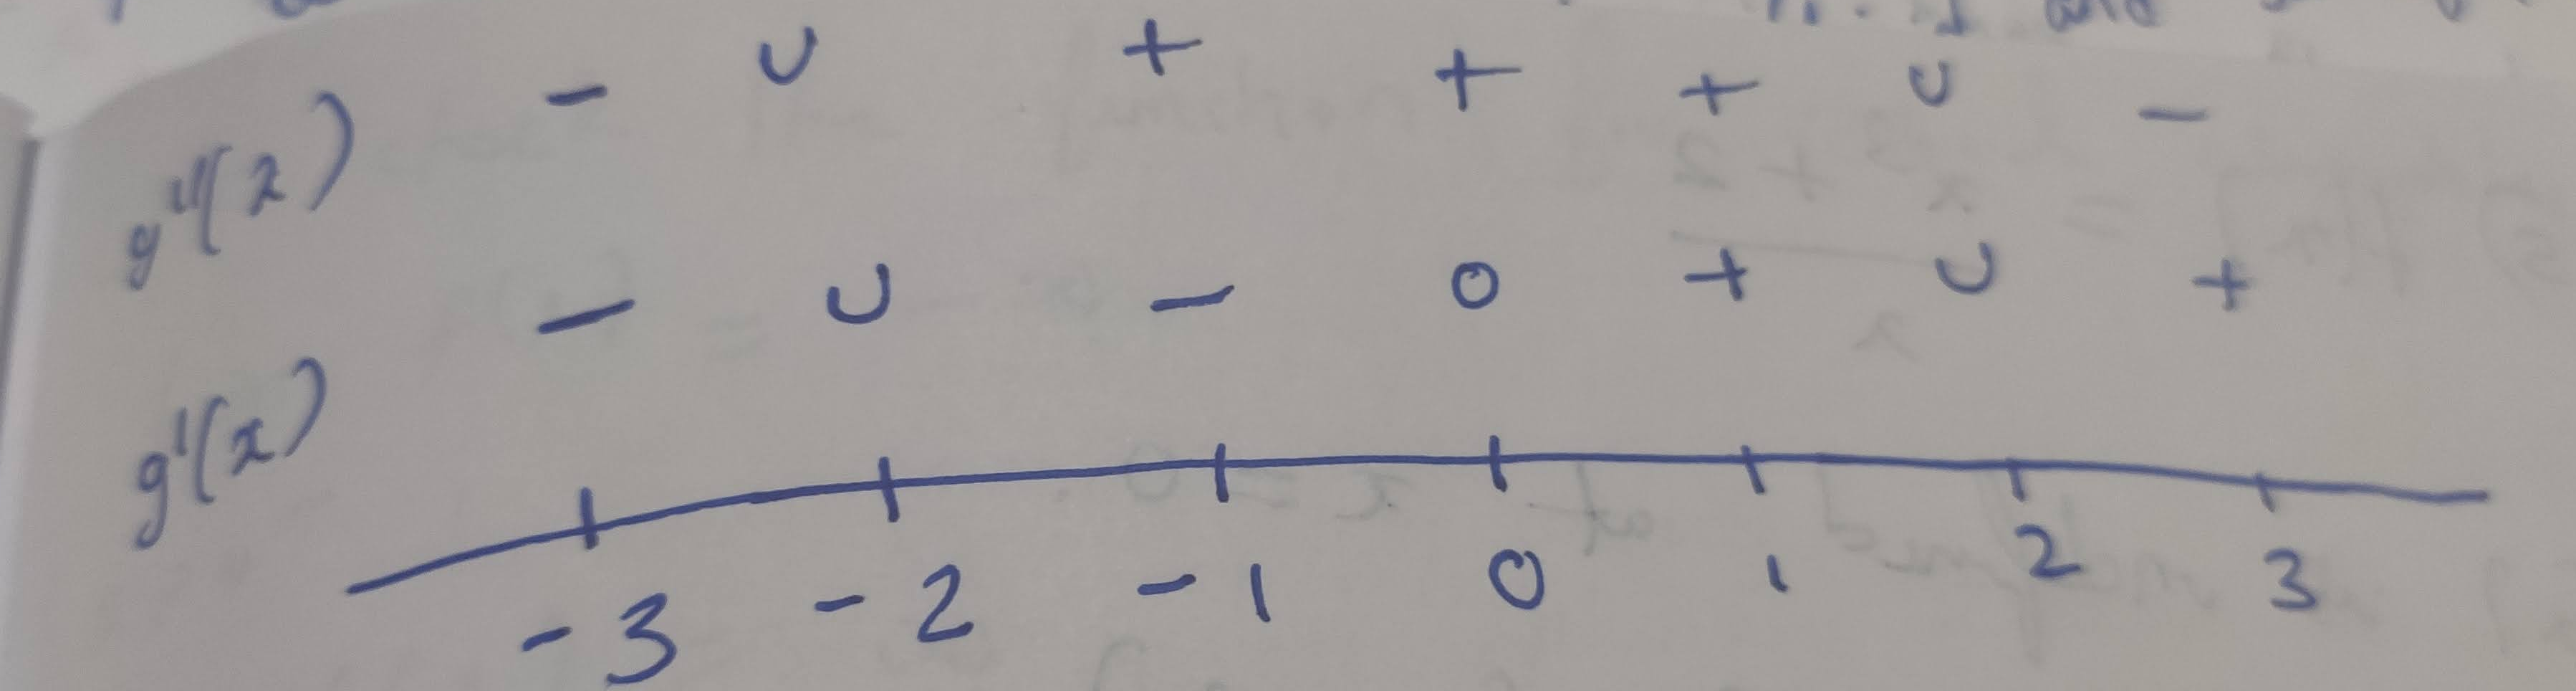 and
g''(x) - U + + + U -
g'(x) - U - 0 + U +
-3 -2 -1 0 1 2 3